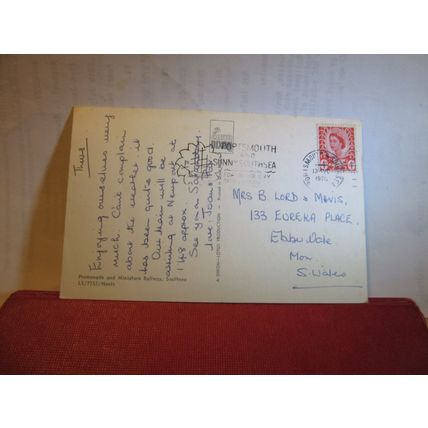 Thurs
Enjoying ourselves very
much. Can't complain
about the weather. it
has been quite good.
Our train will be
arriving at Newport at
1.48 approx
See you Saturday.
love Joan
Promenade and Miniature Railway, Southsea
L1/7755/Hants
A DIXON-LOTUS PRODUCTION
PORTSMOUTH
AND
SUNNY SOUTHSEA
PORTSMOUTH
1970
MRS B. LORD & MAVIS,
133 EUREKA PLACE,
Ebbw Vale
Mon.
S. Wales